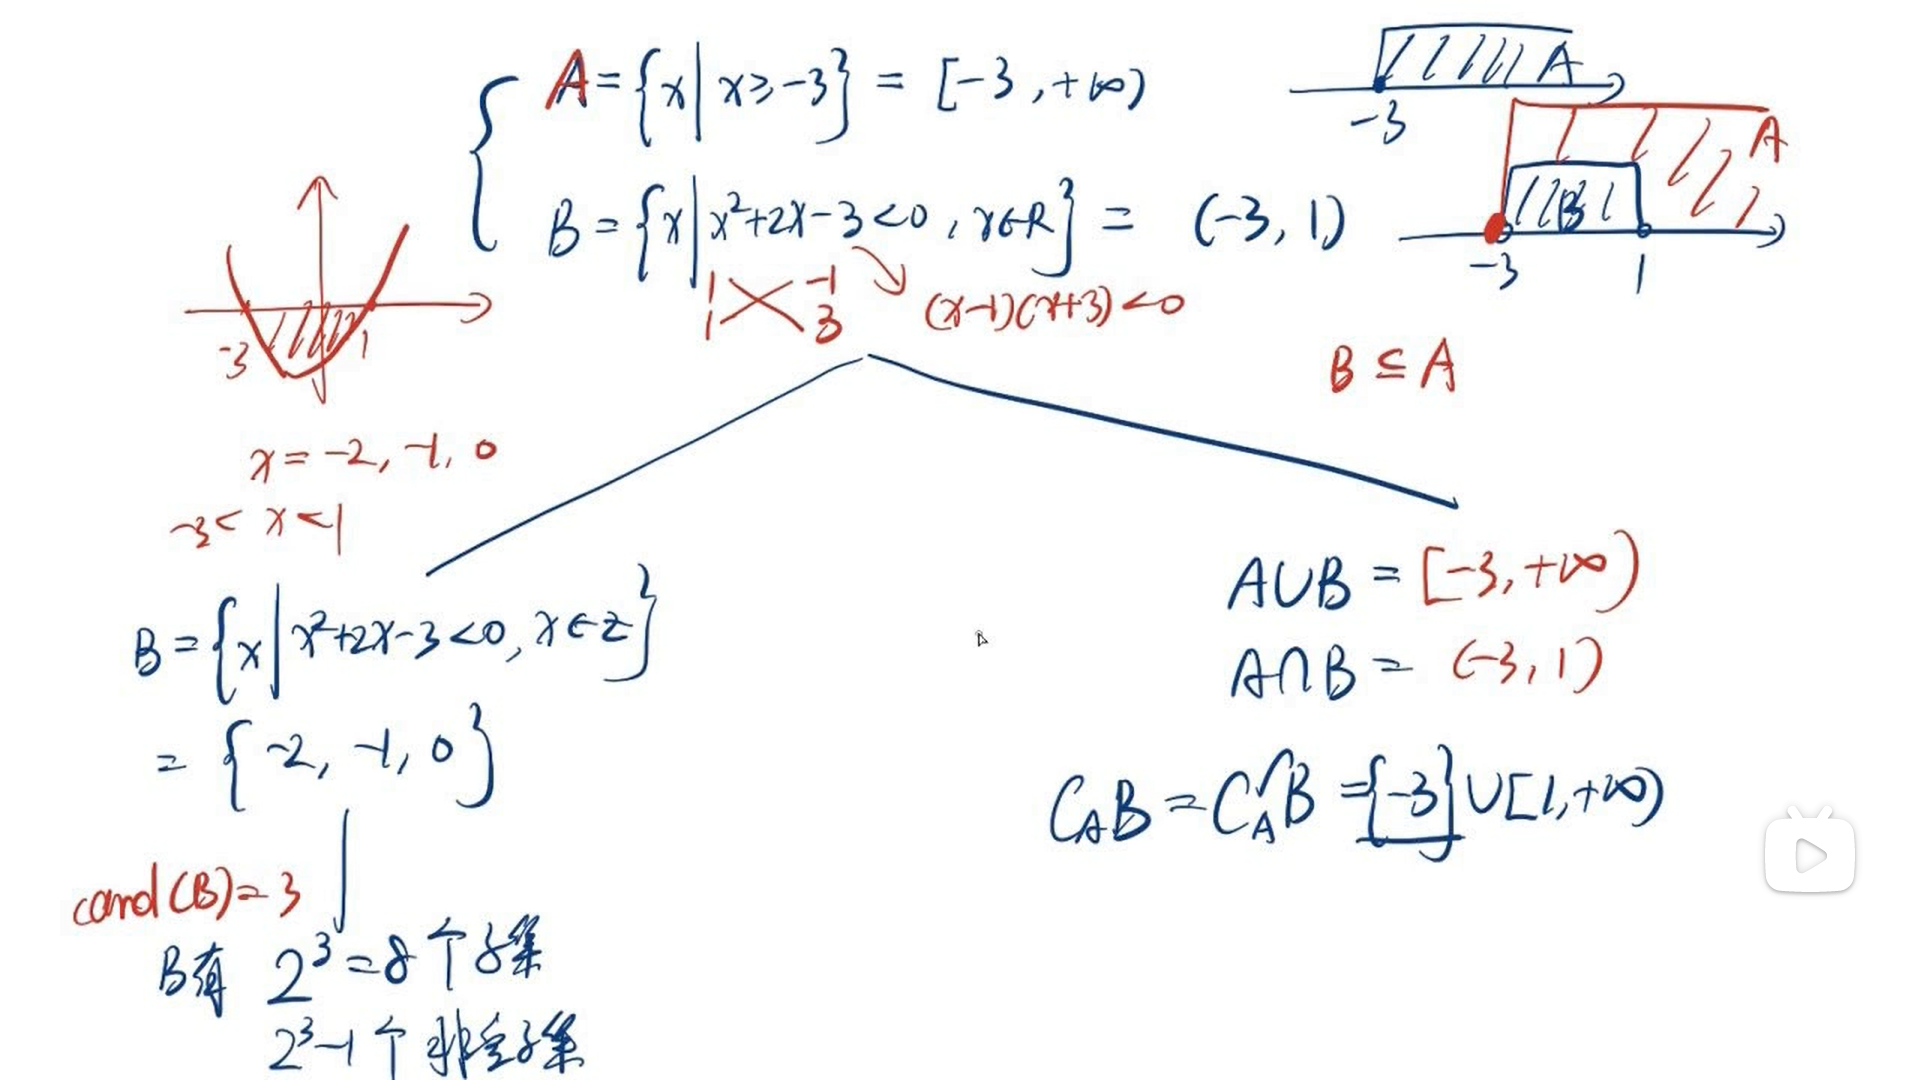 A = {x | x ≥ -3} = [-3, +∞)
A
-3
B = {x | x²+2x-3<0, x∈R} = (-3, 1)
A
B
-3 1
1 -1
1 3
(x-1)(x+3)<0
-3 1
B ⊆ A
x = -2, -1, 0
-3 < x < 1
B = {x | x²+2x-3<0, x∈Z}
= {-2, -1, 0}
card(B) = 3
B有 2³=8个子集
2³-1个非空子集
A∪B = [-3, +∞)
A∩B = (-3, 1)
C_A B = C_A B = {-3}∪[1, +∞)